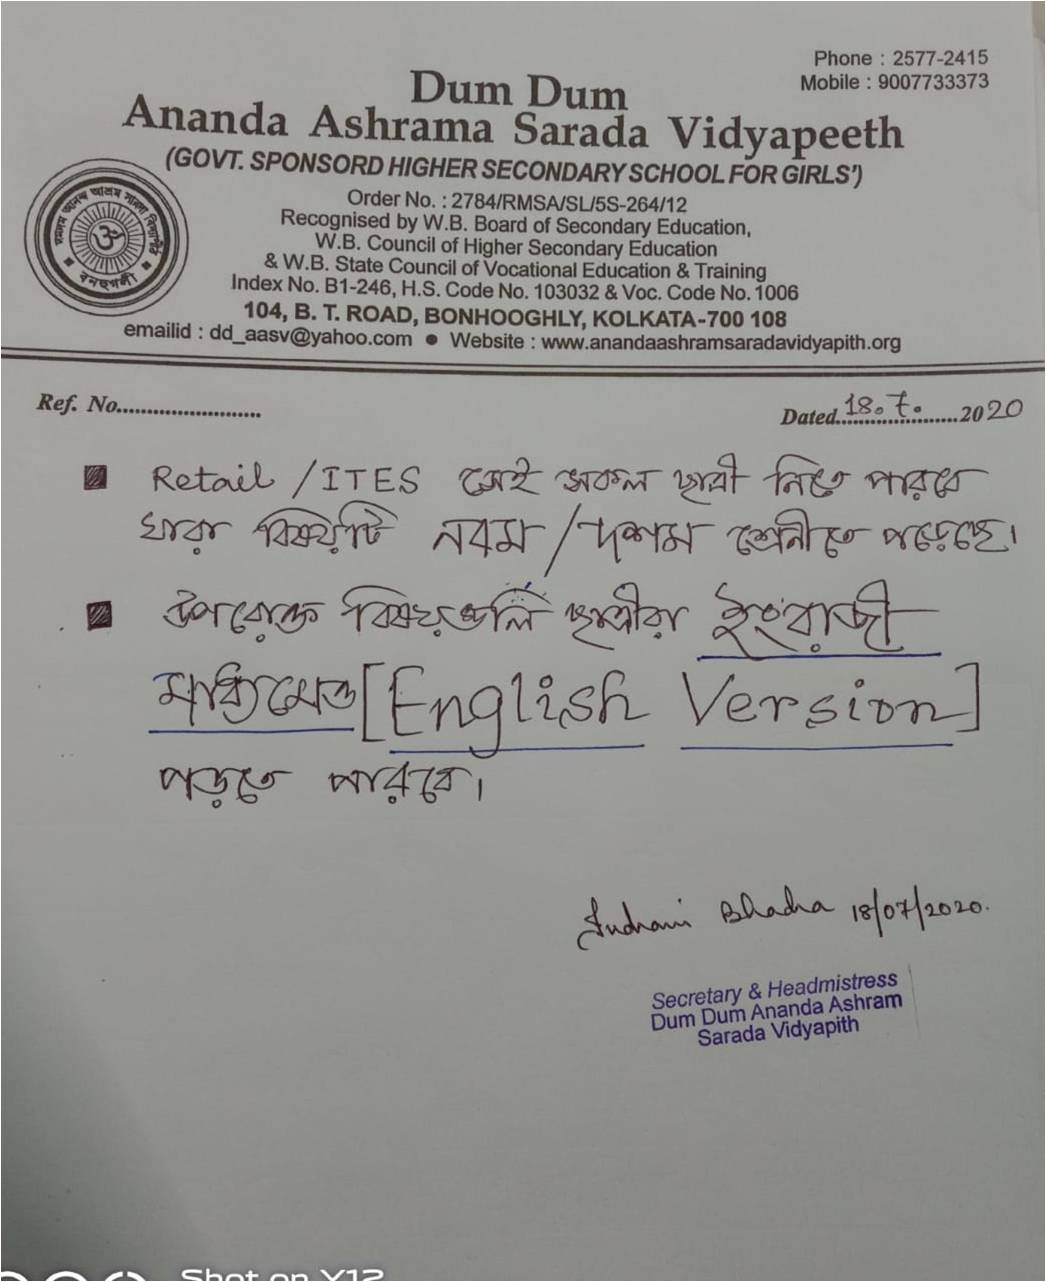 Phone : 2577-2415
Mobile : 9007733373
Dum Dum
Ananda Ashrama Sarada Vidyapeeth
(GOVT. SPONSORD HIGHER SECONDARY SCHOOL FOR GIRLS')
Order No. : 2784/RMSA/SL/5S-264/12
Recognised by W.B. Board of Secondary Education,
W.B. Council of Higher Secondary Education
& W.B. State Council of Vocational Education & Training
Index No. B1-246, H.S. Code No. 103032 & Voc. Code No. 1006
104, B. T. ROAD, BONHOOGHLY, KOLKATA-700 108
emailid : dd_aasv@yahoo.com ● Website : www.anandaashramsaradavidyapith.org
দমদম আনন্দ আশ্রম সারদা বিদ্যাপীঠ
বনহুগলী
Ref. No........................
Dated..18.7.......2020
Retail / ITES সেই সকল ছাত্রী নিতে পারবে
যারা বিষয়টি নবম / দশম শ্রেনীতে পড়েছে।
উপরোক্ত বিষয়গুলি ছাত্রীরা ইংরাজী
মাধ্যিমেও [English Version]
পড়তে পারবে।
Indrani Bhadra 18/07/2020.
Secretary & Headmistress
Dum Dum Ananda Ashram
Sarada Vidyapith
Shot on Y12